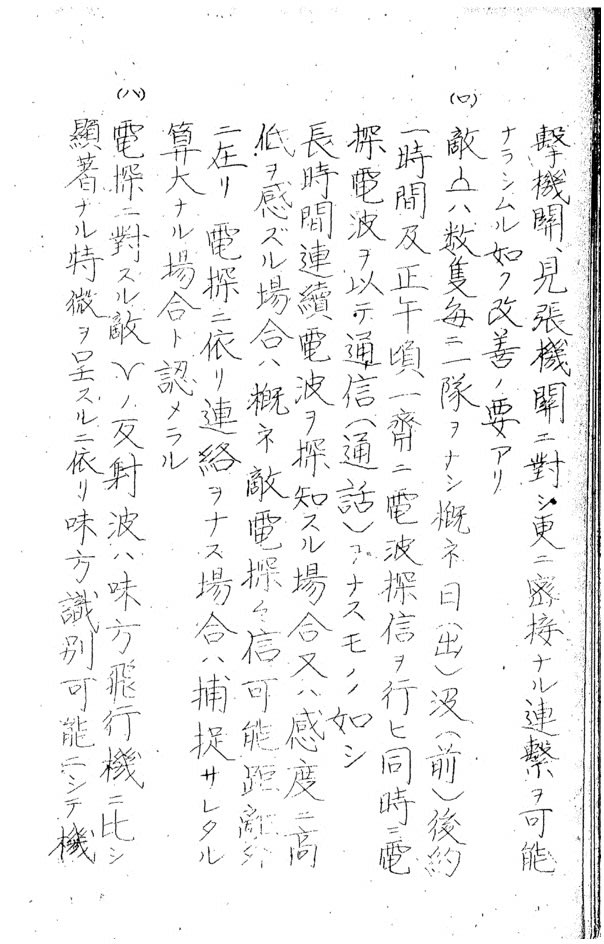 擊機關、見張機關ニ對シ更ニ密接ナル連繫ヲ可能
ナラシムル如ク改善ノ要アリ
(ロ) 敵ハ数隻每ニ一隊ヲナシ概ネ日(出)没(前)後約
一時間及正午頃一齊ニ電波探信ヲ行ヒ同時ニ電
探電波ヲ以テ通信(通話)ヲナスモノノ如シ
長時間連續電波ヲ探知スル場合又ハ感度ニ高
低ヲ感ズル場合ハ概ネ敵電探信可能距離外
ニ在リ 電探ニ依リ連絡ヲナス場合ハ捕捉サレタル
算大ナル場合ト認メラル
(ハ) 電探ニ對スル敵ノ反射波ハ味方飛行機ニ比シ
顯著ナル特徴ヲ呈スルニ依リ味方識別可能ニシテ機